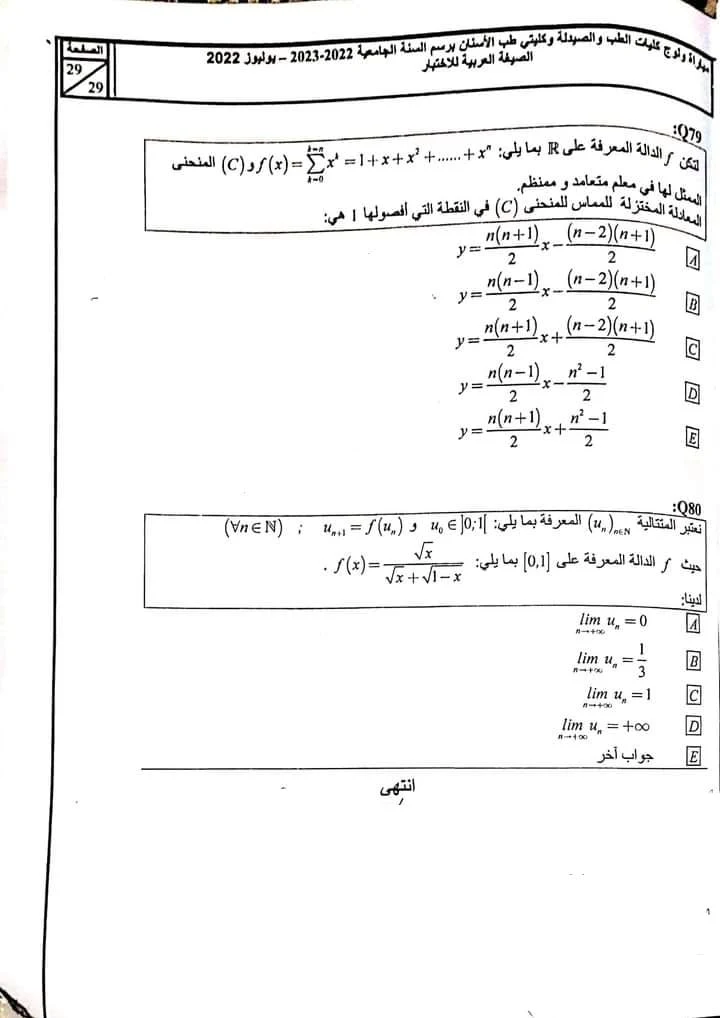 مباراة ولوج كليات الطب والصيدلة وكليتي طب الأسنان برسم السنة الجامعية 2022-2023 – يوليوز 2022
الصيغة العربية للاختبار
الصفحة
29
29
Q79:
لتكن f الدالة المعرفة على ℝ بما يلي: f(x)=∑_{k=0}^{k=n} x^k =1+x+x²+......+x^n و (C) المنحنى
الممثل لها في معلم متعامد و ممنظم.
المعادلة المختزلة للمماس للمنحنى (C) في النقطة التي أفصولها 1 هي:
A y = n(n+1)/2 x − (n−2)(n+1)/2
B y = n(n−1)/2 x − (n−2)(n+1)/2
C y = n(n+1)/2 x + (n−2)(n+1)/2
D y = n(n−1)/2 x − n²−1/2
E y = n(n+1)/2 x + n²−1/2
Q80:
نعتبر المتتالية (u_n)_{n∈ℕ} المعرفة بما يلي: u_0 ∈ ]0;1[ و u_{n+1} = f(u_n) ; (∀n∈ℕ)
حيث f الدالة المعرفة على [0,1] بما يلي: f(x) = √x/(√x+√(1−x)) .
لدينا:
A lim_{n→+∞} u_n = 0
B lim_{n→+∞} u_n = 1/3
C lim_{n→+∞} u_n = 1
D lim_{n→+∞} u_n = +∞
E جواب آخر
انتهى